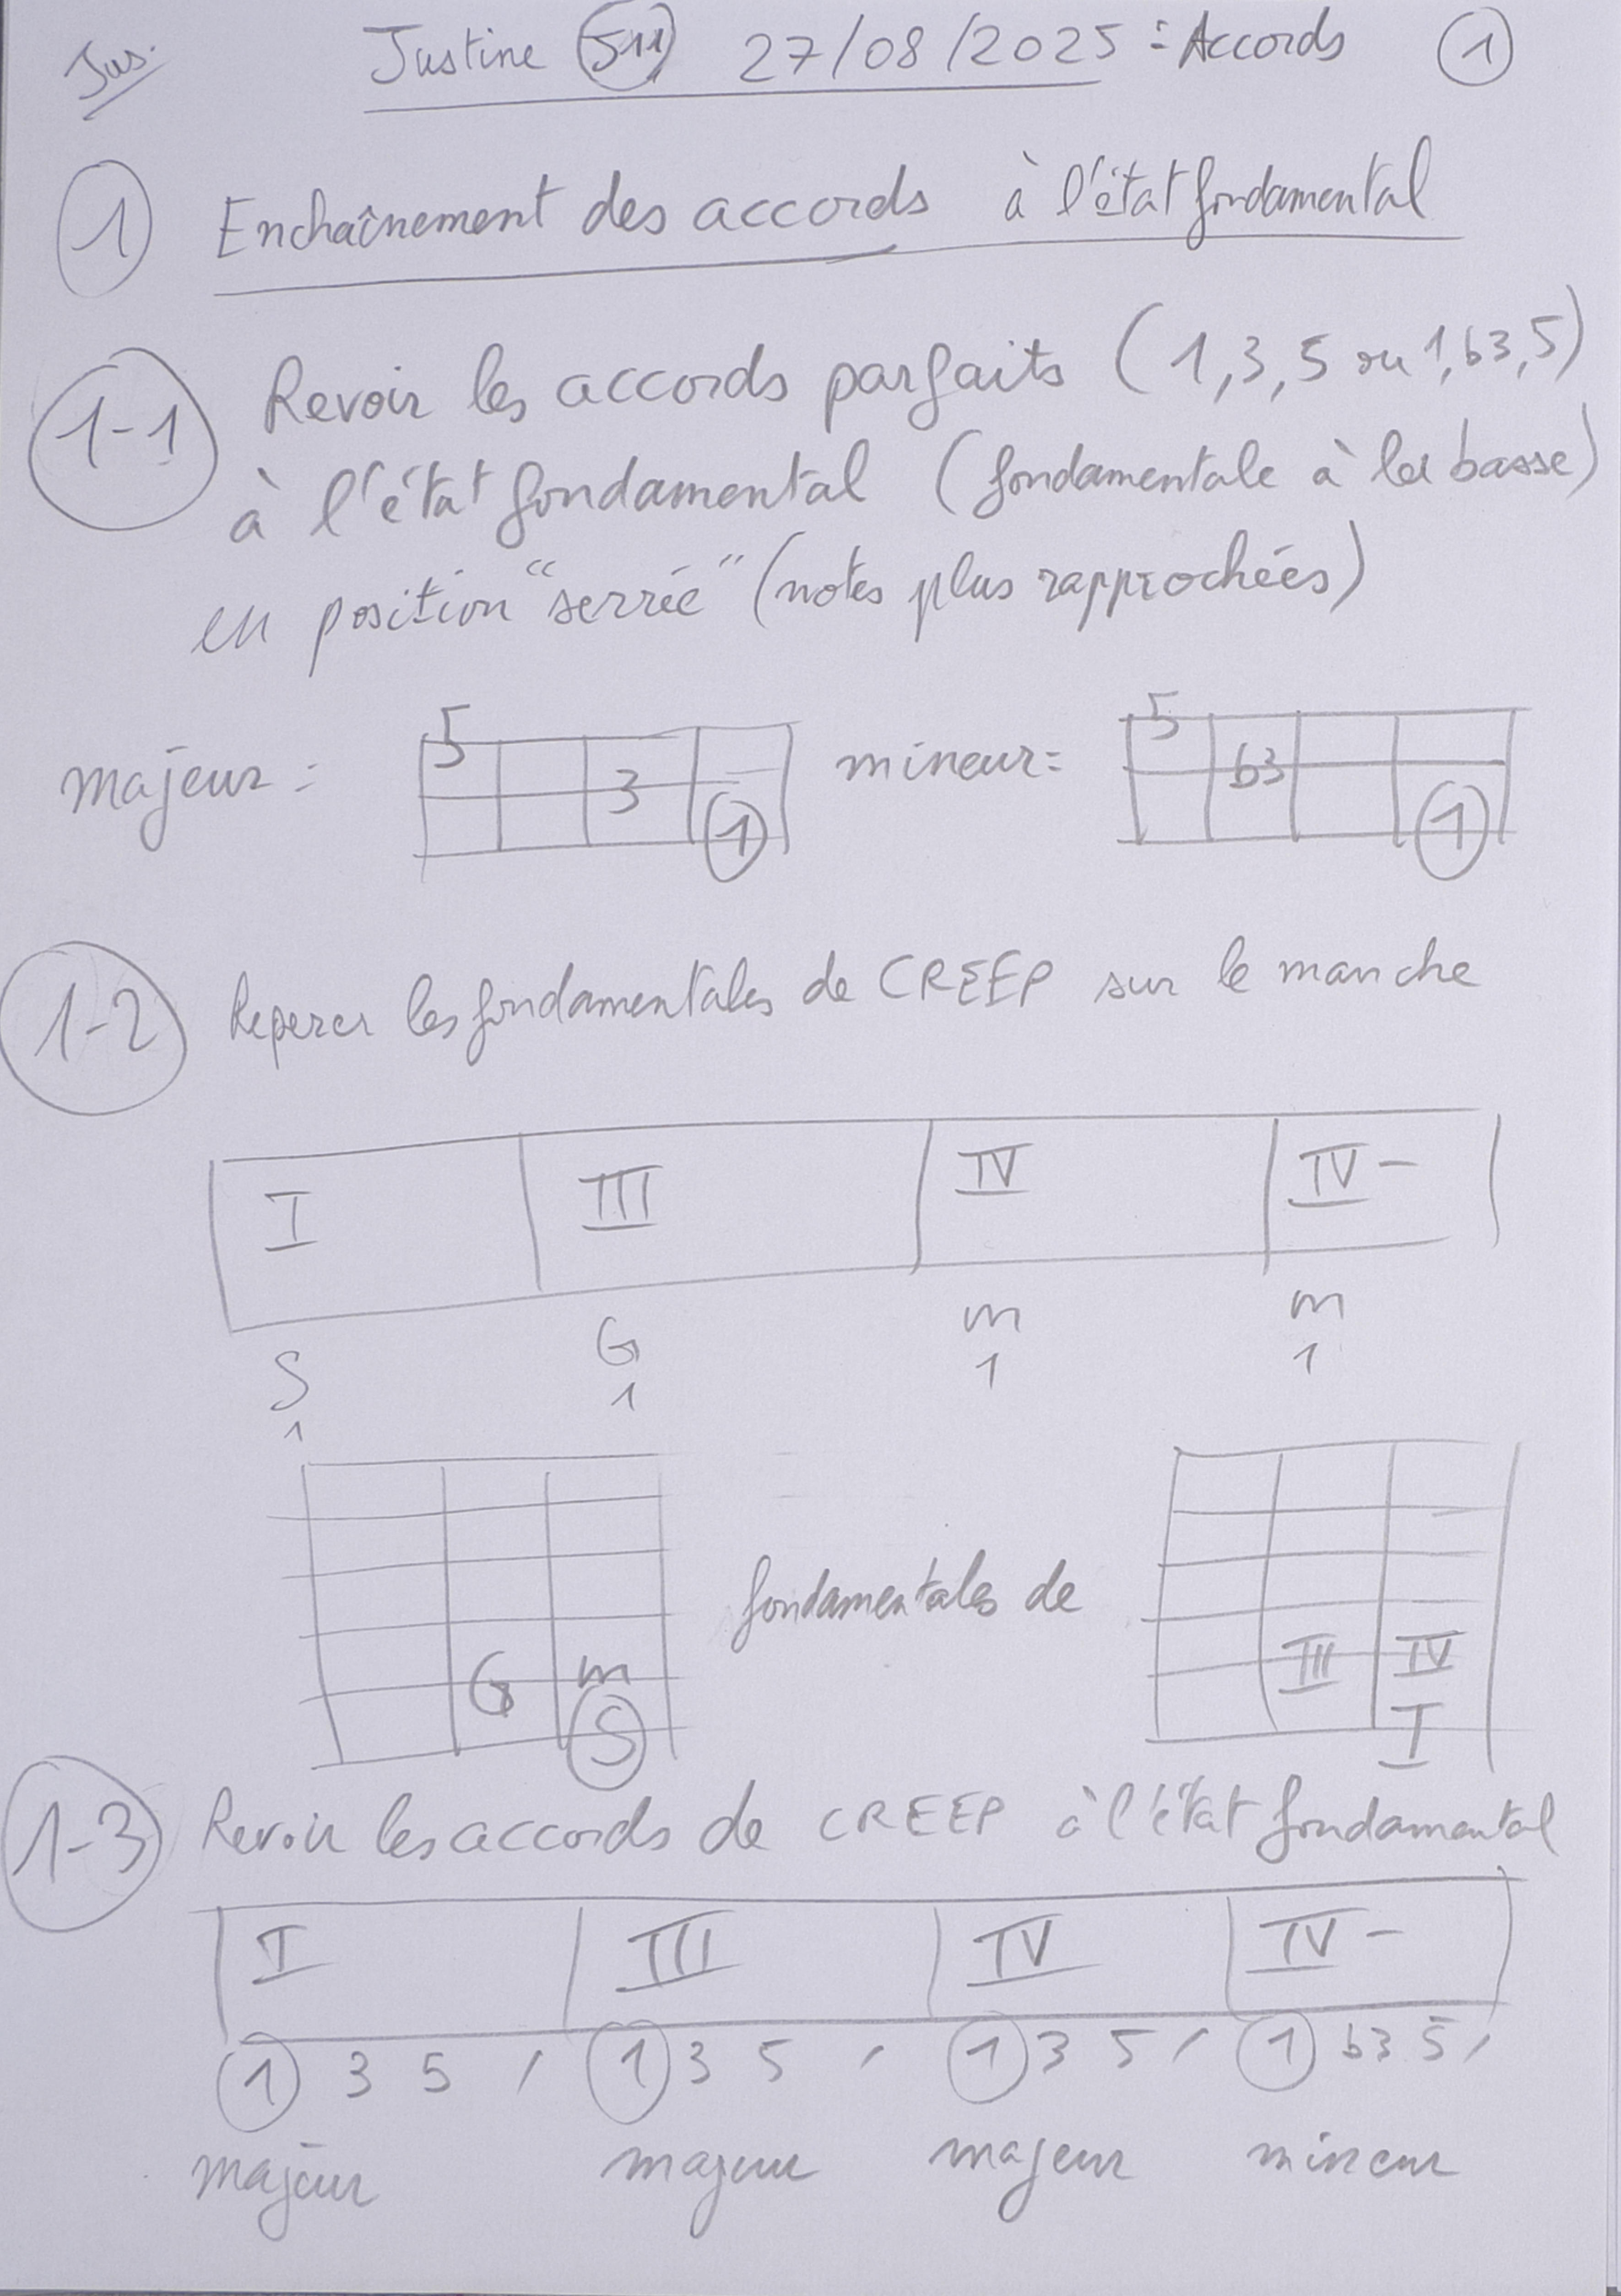 Jus. Justine 511 27/08/2025 : Accords 1
1 Enchaînement des accords à l'état fondamental
1-1 Revoir les accords parfaits (1, 3, 5 ou 1, b3, 5)
à l'état fondamental (fondamentale à la basse)
en position "serrée" (notes plus rapprochées)
5 5
majeur : 3 mineur : b3
1 1
1-2 Reperer les fondamentales de CREEP sur le manche
I III IV IV-
S G m m
1 1 1 1
fondamentales de
G m III IV
S I
1-3 Revoir les accords de CREEP à l'état fondamental
I III IV IV-
1 3 5 , 1 3 5 , 1 3 5 , 1 b3 5 ,
majeur majeur majeur mineur